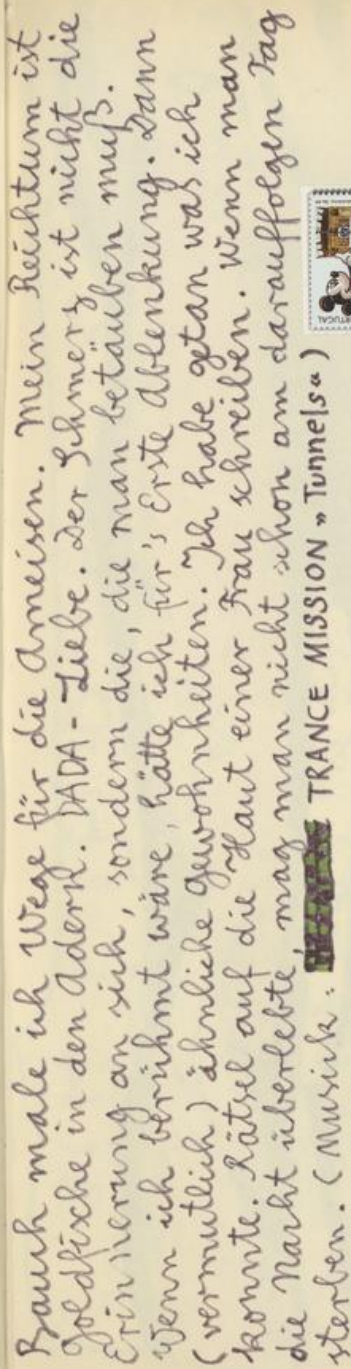 Bauch male ich Wege für die Ameisen. Mein Reichtum ist
Goldfische in den Adern. DADA-Liebe. Der Schmerz ist nicht die
Erinnerung an sich, sondern die, die man betäuben muß.
Wenn ich berühmt wäre, hätte ich für's Erste Ablenkung. Dann
(vermutlich) ähnliche Gewohnheiten. Ich habe getan was ich
konnte. Rätsel auf die Haut einer Frau schreiben. Wenn man
die Nacht überlebte, mag man nicht schon am darauffolgen Tag
sterben. (Musick: TRANCE MISSION »Tunnels«)
PORTUGAL